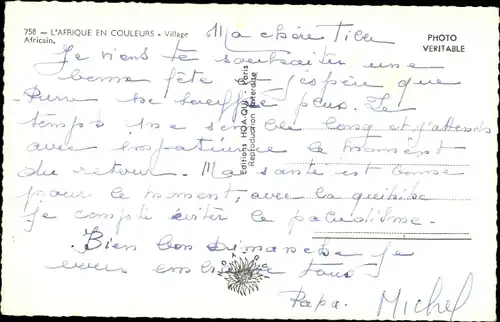 758 — L'AFRIQUE EN COULEURS - Village
Africain.
PHOTO
VERITABLE
Ma chère
Je viens te souhaiter une
bonne fête J'espère que
Pierre ne souffre plus. Le
temps me semble long et j'attends
avec impatience le moment
du retour. Ma santé est bonne
pour le moment, avec la
je compte éviter le paludisme.
Bien bon Dimanche je
vous embrasse tous
Papa. Michel
Editions HOA-QUI - Paris
Reproduction interdite